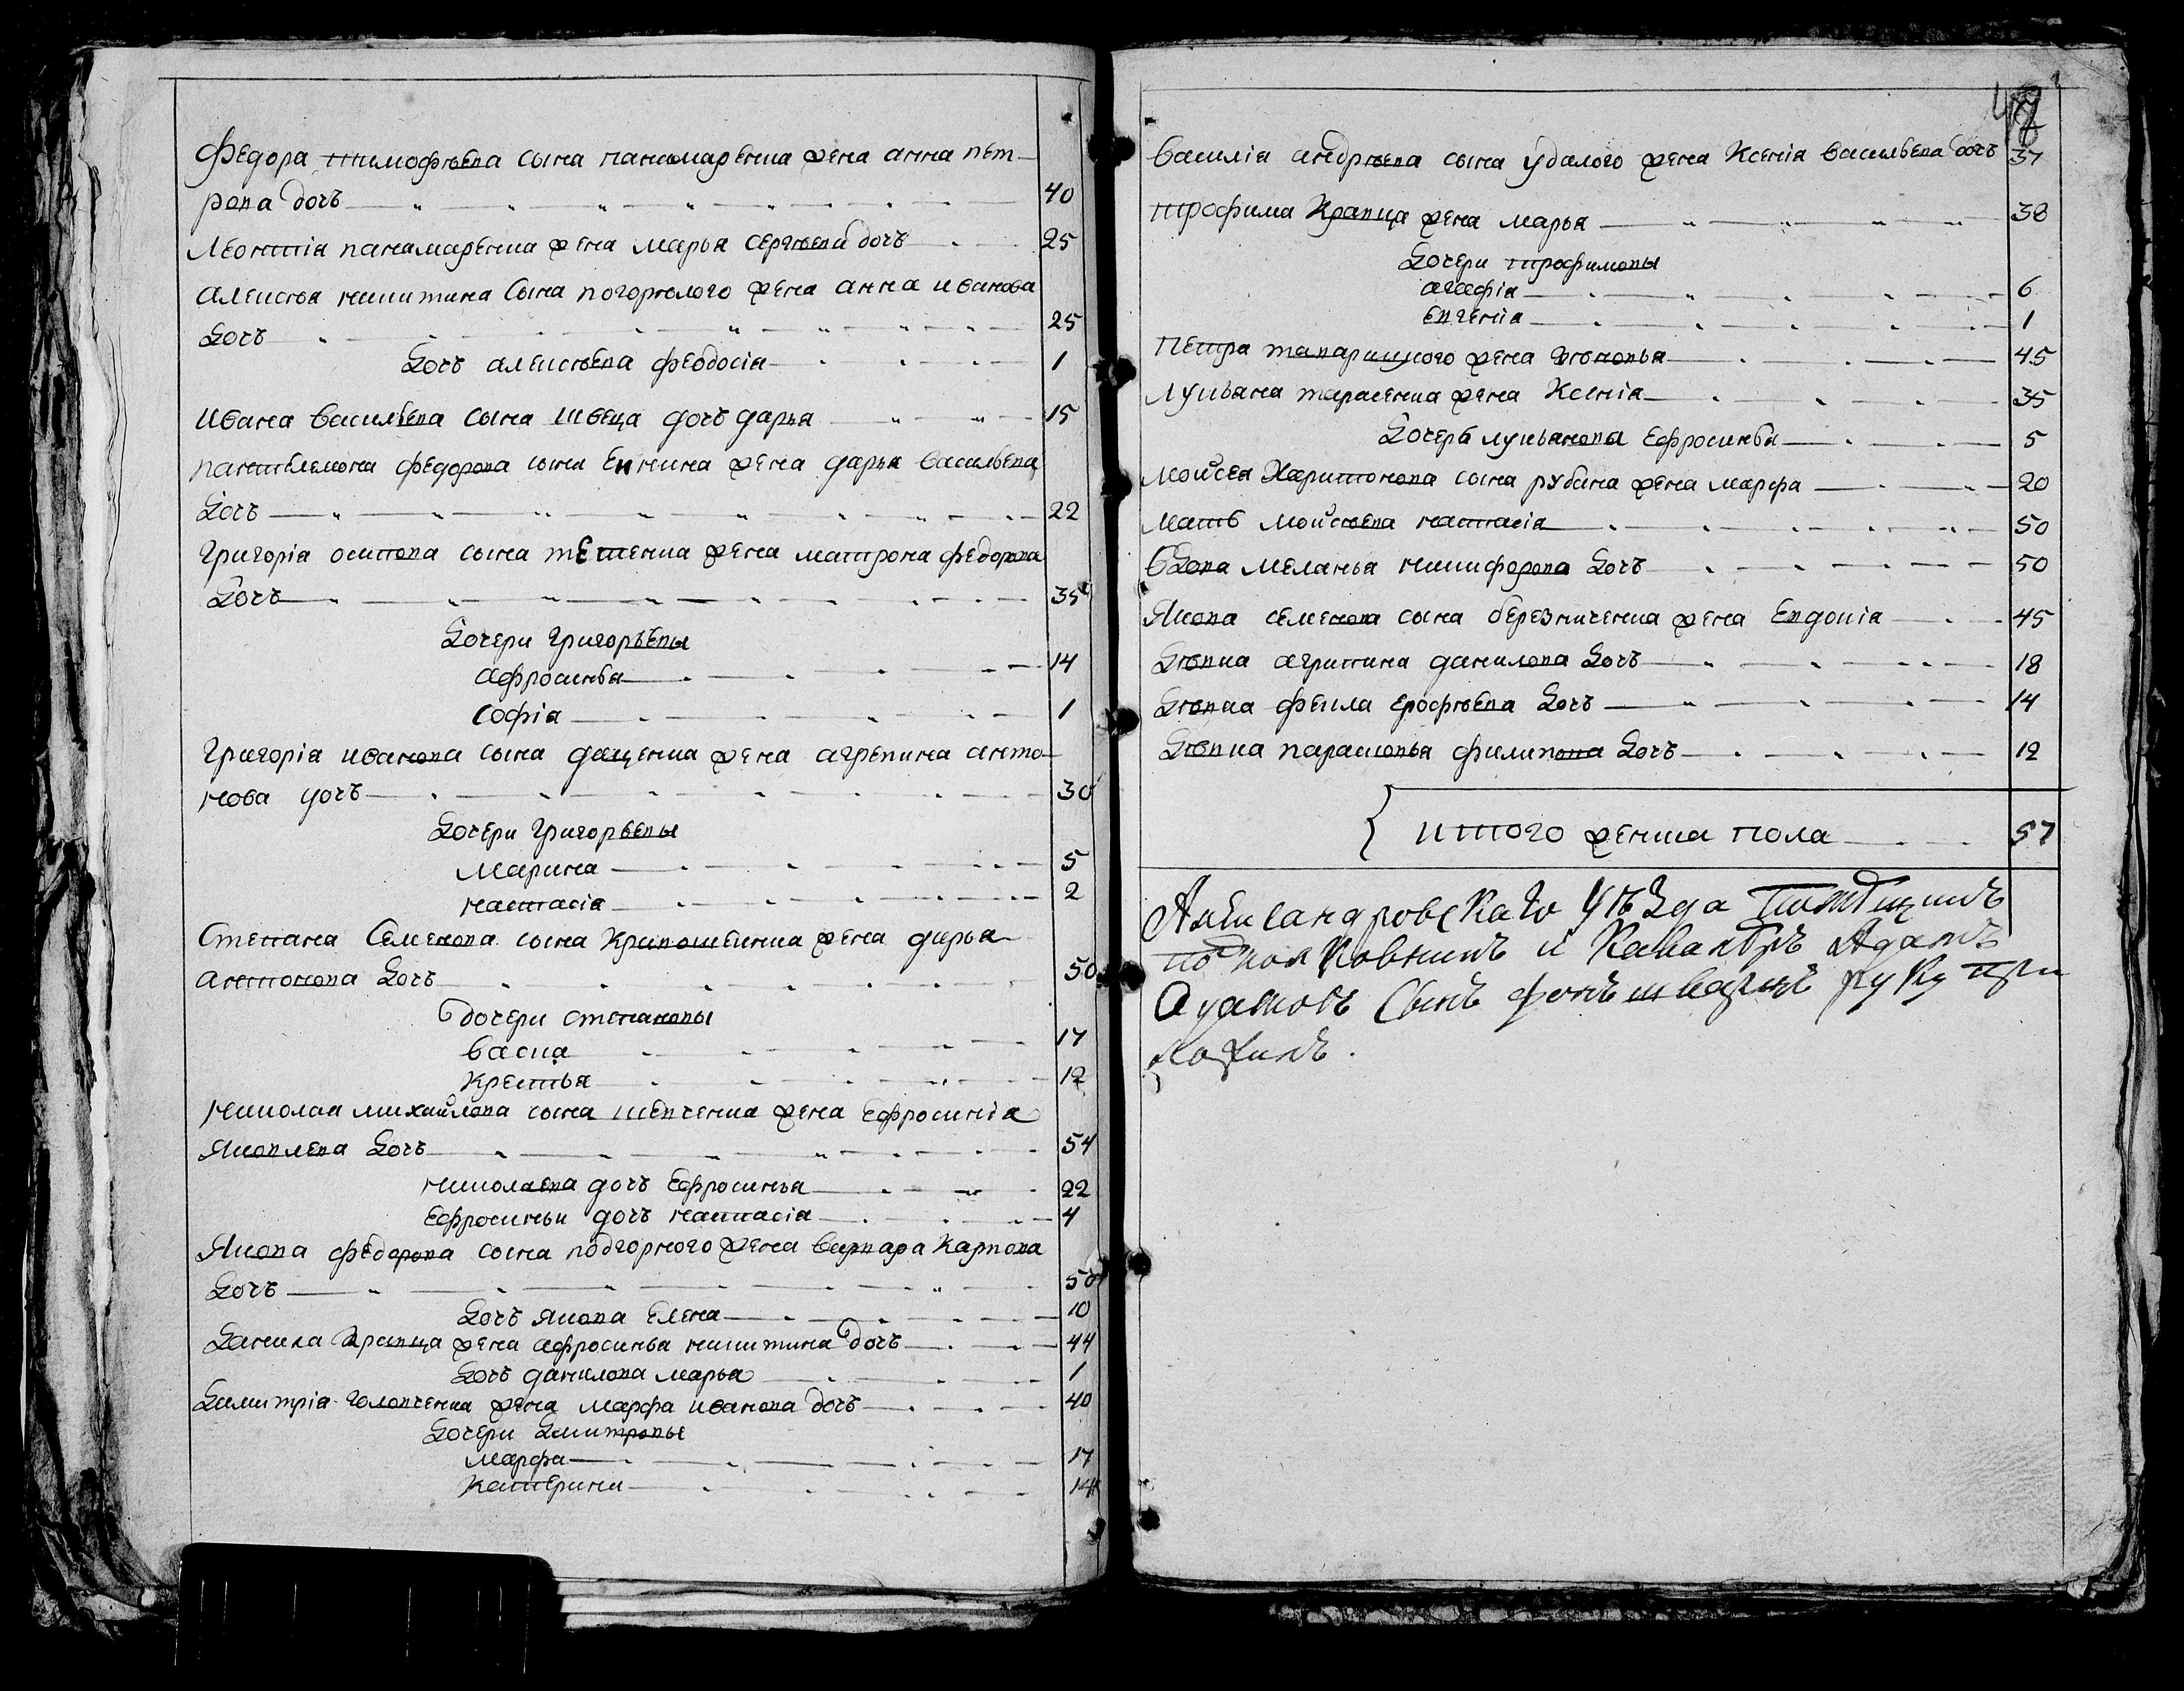 Федора Тимофѣева сына панамаренка жена анна пет-
рова дочъ 40
Леонтія панамаренка жена марья сергѣева дочъ 25
алексѣя никитина сына погорѣлого жена анна иванова
дочъ 25
дочъ алексѣева феодосія 1
ивана васильева сына швеца дочъ дарья 15
пантелемона федорова сына жена дарья васильева
дочъ 22
григорія осипова сына тетенка жена матрона федорова
дочъ 35
дочери григорьевы
афросинья 14
софія 1
григорія иванова сына даценка жена агрепина анто-
нова дочъ 30
дочери григорьевы
марина 5
настасія 2
степана семенова сына кривошеинка жена дарья
антонова дочъ 50
дочери степановы
васка 17
крестья 12
николая михайлова сына шевченка жена ефросинія
яковлева дочъ 54
николаева дочъ ефросинья 22
ефросиньи дочъ настасія 4
якова федорова сына подгорного жена варвара карпова
дочъ 50
дочъ якова елена 10
данила кравца жена афросинья никитина дочъ 44
дочъ данилова марья 1
димитрія головченка жена марфа иванова дочъ 40
дочери дмитровы
марфа 17
катерина 14
василія андрѣева сына удалого жена ксенія васильева дочъ 37
трофима кравца жена марья 38
дочери трофимовы
агафія 6
евгенія 1
петра жена 45
лукьяна тарасенка жена ксенія 35
дочерь лукьянова ефросинья 5
мойсея харитонова сына рубана жена марфа 20
мать мойсѣева настасія 50
вдова меланья никифорова дочъ 50
якова семенова сына березниченка жена евдокія 45
дѣвка агрипина данилова дочъ 18
дѣвка фекла ерофѣева дочъ 14
дѣвка парасковья филипова дочъ 12
итого женска пола 57
Александровскаго уѣзда помѣщикъ
подполковникъ и кавалеръ Адамъ
Адамовъ сынъ фонъ шварцъ руку при
ложилъ.